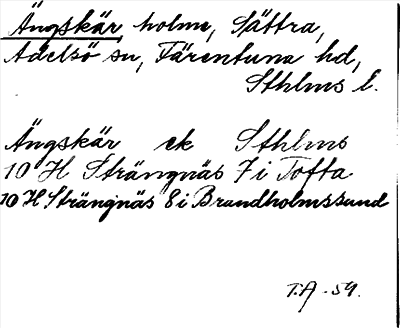 Ängskär holme, Sättra,
Adelsö sn, Färentuna hd,
Sthlms l.
Ängskär ek Sthlms
10 H Strängnäs 7 i Tofta
10 H Strängnäs 8 i Brandholmssund
T.A - 59.